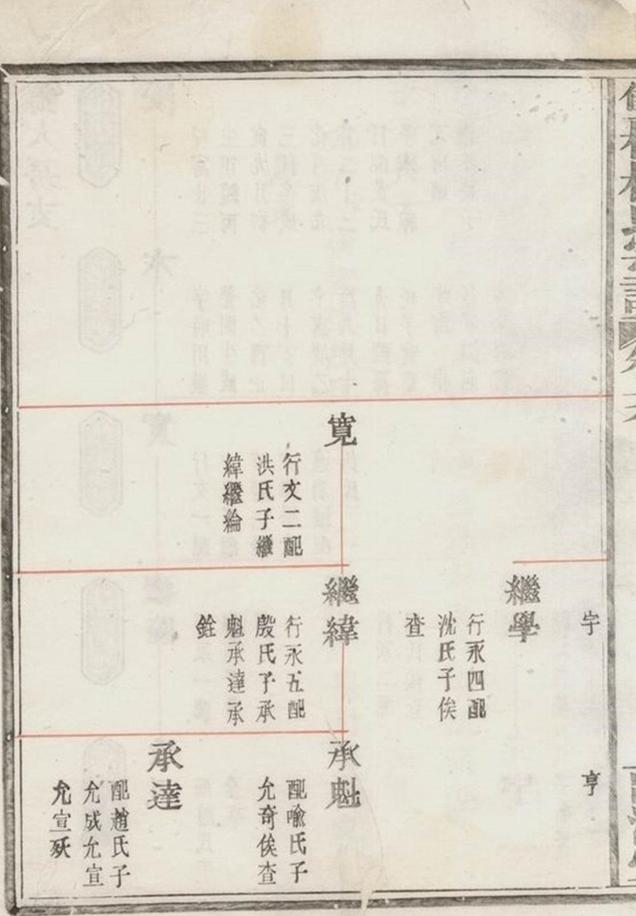 寬
行文二配
洪氏子繼
緯繼綸
繼學
行永四配
沈氏子俟
查
繼緯
行永五配
殷氏子承
魁承達承
銓
亨
承魁
配喻氏子
允奇俟查
承達
配趙氏子
允成允宣
允宣殀